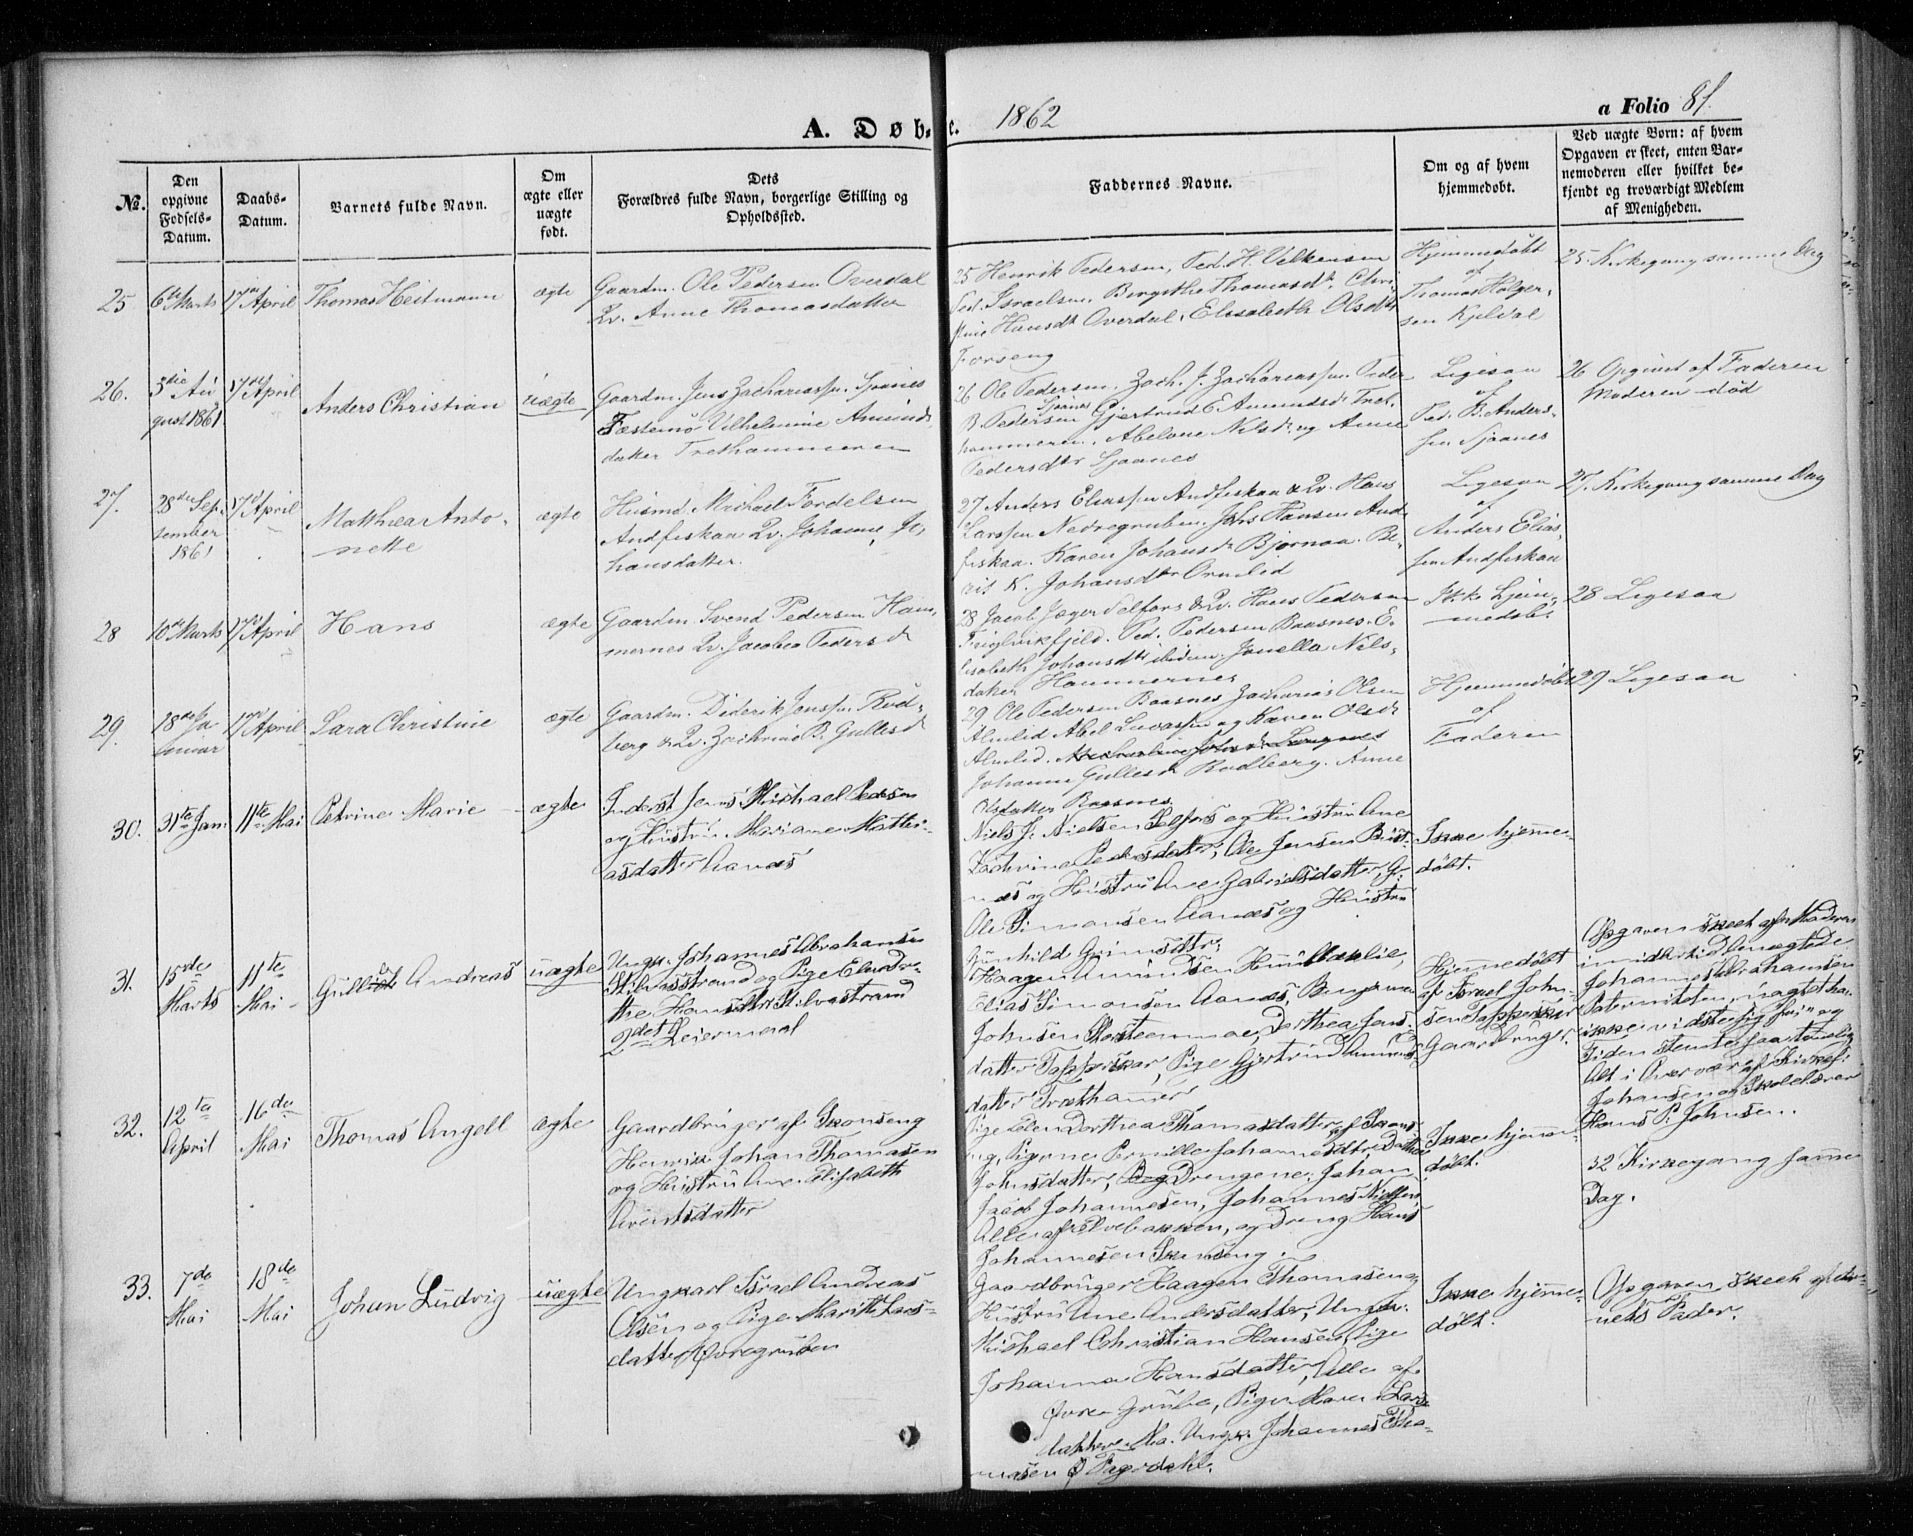 A. Døbte. 1862
a Folio 81.
№.
Den opgivne Fødsels-Datum.
Daabs-Datum.
Barnets fulde Navn.
Om ægte eller uægte født.
Dets Forældres fulde Navn, borgerlige Stilling og Opholdssted.
Faddernes Navne.
Om og af hvem hjemmedøbt.
Ved uægte Børn: af hvem Opgaven er skeet, enten Barnemoderen eller hvilket bekjendt og troværdigt Medlem af Menigheden.
25
6te Marts
17de April
Thomas Heitmann
ægte
Gaardm. Ole Pedersen Overdal
Anne Thomasdatter
25 Henrik Pedersen, Ped. H.
Ped. Israelsen, Bergithe Thomasdr. Chri-
stine Hansdr Overdal, Elisabeth Olsdtr
Forseng
Hjemmedøbt
af
Thomas Holger-
sen Kjeldal
25 Kirkegang samme Dag
26.
3die Au-
gust 1861
17de April
Anders Christian
uægte
Gaardm. Jens Zachariassen Sjonnes
Fæstemø Vilhelmine Amunds
datter Trethammeren
26 Ole Pedersen, Zach. J. Zachariassen, Peder
B. Pedersen Gjertrud E. Amundsdr Tret-
hammeren, Abelone Nilsdr og Anne
Pedersdtr
Ligesaa
af
Ped. B. Anders-
sen
26 Opgivet af Faderen
Moderen død
27.
28de Sep-
tember
1861
17de April
Matthea Anto-
nette
ægte
Husmd. Michael Fordelsen
Andfiskaa Johanna Jo-
hansdatter.
27 Anders Eliassen Andfiskaa Hans
Larssen Nedregruben, Johs Hansen And-
fiskaa. Karen Johansdr Bjørnaa. Be-
rit K. Johansdtr Ormlid
Ligesaa
af
Anders Elias-
sen Andfiskaa
27. Kirkegang samme Dag
28
10de Marts
17de April
Hans
ægte
Gaardm. Svend Pedersen Ham-
mernes Jacobea Pedersdr
28 Jacob Jæger Selfors Hans Pedersen
Ped. Pedersen Baasnes. E-
lisabeth Johansdtr ibidem. Jonella Nils-
datter Hammernes
Ikke hjem-
medøbt
28 Ligesaa
29.
18de Ja-
nuar
17de April
Sara Christine
ægte
Gaardm. Diderik Jenssen Rød-
berg Zachrine P. Gullesdr
29 Ole Pedersen Baasnes Zacharias Olsen
Almlid Abel Lucassen og Karen Olsdr
Almlid.
Johanna Gullesdr Rødberg. Anne
Olsdatter Baasnes
Hjemmedøbt
af
Faderen
29 Ligesaa
30.
31te Jan.
11te Mai
Petrine Marie
ægte
Inderst Jens Michael Pedersen
og Hustru Mariane Matti-
asdatter Aanæs
Niels J. Nielsen Selfors og Hustru Ane
Zachrina Pedersdatter, Ole Jensen
og Hustru Ane Gabrielsdatter,
Ole Simonsen Aanæs og Hustru
Gunhild Grimsdtr.
Ikke hjemme-
døbt.
31.
15de
Marts
11te
Mai
Andreas
uægte
Ungk. Johannes Abrahamsen
Stilvasstrand og Pige
Hansdtr Stilvastrand
2det Leiermaal
Haagen Amundsen
Elias Simonsen Aanæs, Benjamin
Johnsen Dorthea Jens-
datter Tapperskar, Pige Gjertrud Amunds
datter Trethamer
Hjemmedøbt
af Israel John-
sen Tapperskar
Gaardbruger.
Opgaven skeet af Moderen
imidlertid benægtede
Johannes Abrahamsen
Paterniteten,
ikke vidste sig fri og
Tiden stemte
Alt i Overvær af Kirkes:
Johansen og Skolelærer
Hans P. Johnsen.
32.
12te
April
16de
Mai
Thomas Angell
ægte
Gaardbruger af Skonseng
Henrik Johan Thomasen
og Hustru Ane Elisabeth
datter
Pige Ellen Dorthea Thomasdatter af Skons
eng, Pigerne Pernille Johannesdtr, Dorthea
Johnsdatter, Drengene Johan
Jacob Johannesen, Johannes Nielsen
Alle af og Dreng Hans
Johannesen Skonseng
Ikke hjemme-
døbt.
32 Kirkegang samme
Dag.
33.
7de
Mai
18de
Mai
Johan Ludvig
uægte
Ungkarl Israel Andreas
Olsen og Pige Marith Lars-
datter Øvregruben
Gaardbruger Haagen Thomasen og
Hustru Ane Andersdatter, Ungk.
Michael Christian Hansen, Pige
Johanna Hansdatter, Alle af
Øvre Grube, Pige Maren Lars
datter Ungk. Johannes Tho-
masen
Ikke hjemme-
døbt.
Opgaven skeet af Bar-
nets Fader.